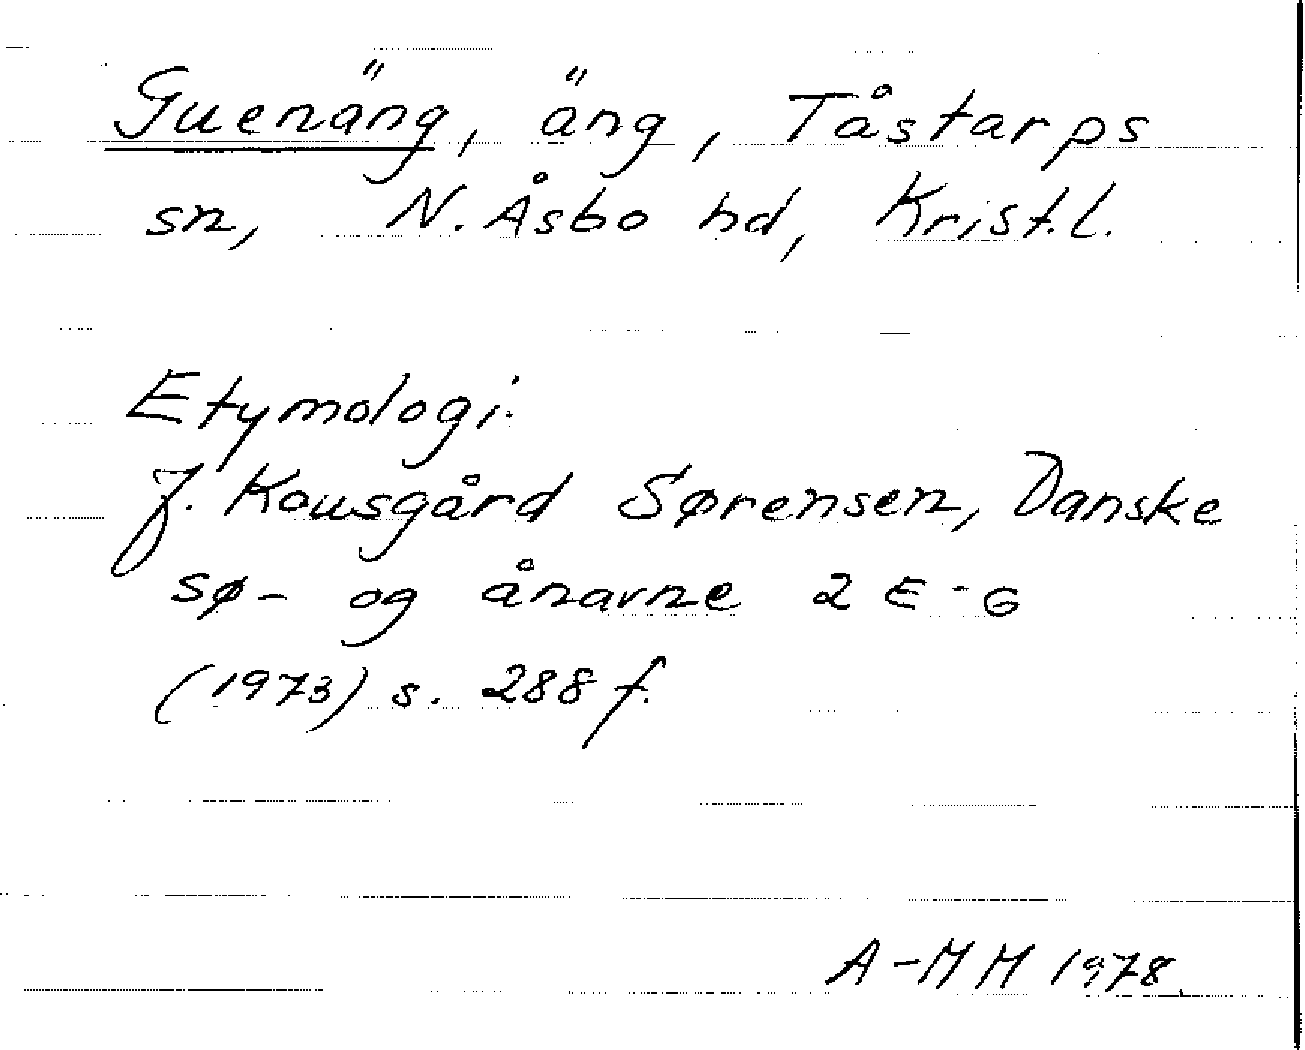 Guenäng, äng, Tåstarps
sn, N. Åsbo hd, Krist.l.
Etymologi:
J. Kousgård Sørensen, Danske
sø- og ånavne 2 E-G
(1973) s. 288 f.
A-MM 1978.